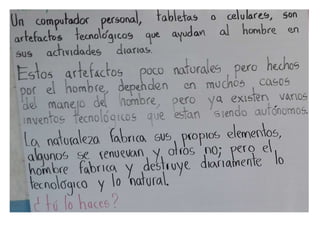 Un computador personal, tabletas o celulares, son
artefactos tecnológicos que ayudan al hombre en
sus actividades diarias.
Estos artefactos poco naturales pero hechos
por el hombre, dependen en muchos casos
del manejo del hombre, pero ya existen varios
inventos tecnológicos que están siendo autónomos.
La naturaleza fabrica sus propios elementos,
algunos se renuevan y otros no; pero el
hombre fabrica y destruye diariamente lo
tecnológico y lo natural.
¿tú lo haces?